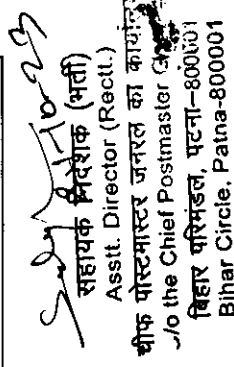 सहायक निदेशक (भर्ती)
Asstt. Director (Rectt.)
चीफ पोस्टमास्टर जनरल का
the Chief Postmaster
बिहार परिमंडल, पटना-800001
Bihar Circle, Patna-800001